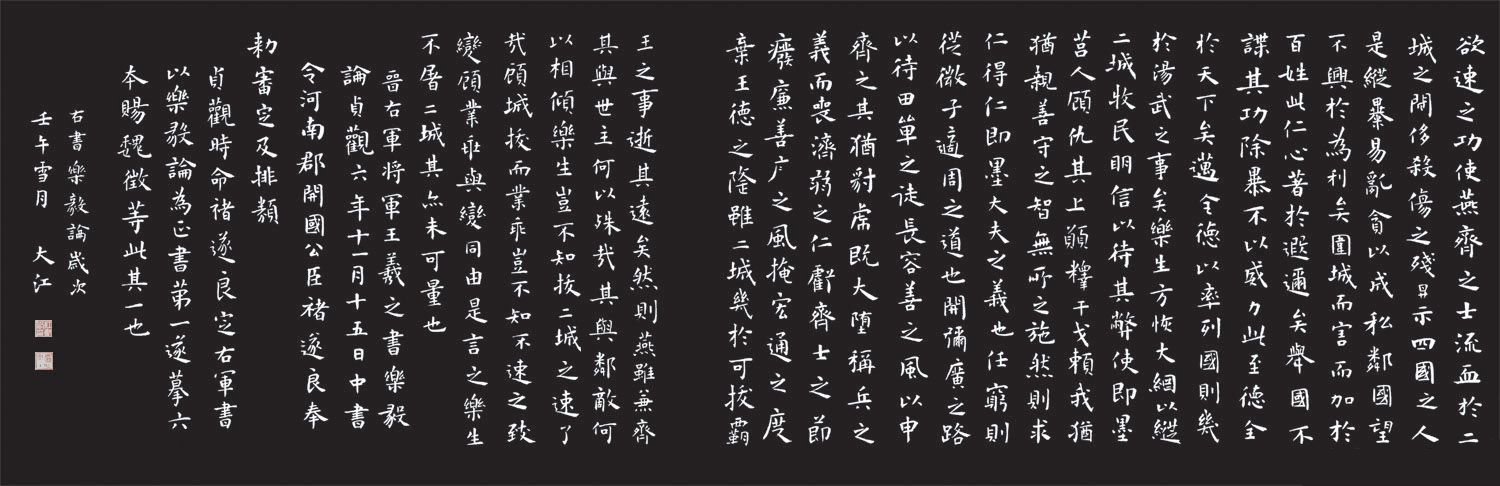 欲速之功使燕齊之士流血於二
城之間侈殺傷之殘示四國之人
是縱暴易亂貪以成私鄰國望
不興於為利矣圍城而害而加於
百姓此仁心著於遐邇矣舉國不
謀其功除暴不以威力此至德全
於天下矣邁全德以率列國則幾
於湯武之事矣樂生方恢大綱以縱
二城牧民明信以待其弊使即墨
莒人顧仇其上願釋干戈賴我猶
猶親善守之智無所之施然則求
仁得仁即墨大夫之義也任窮則
從微子適周之道也開彌廣之路
以待田單之徒長容善之風以申
齊之其猶豺虎既大墮稱兵之
義而喪濟弱之仁虧齊士之節
癈廉善之風掩宏通之度
棄王德之隆雖二城幾於可拔霸
王之事逝其遠矣然則燕雖兼齊
其與世主何以殊哉其與鄰敵何
以相傾樂生豈不知拔二城之速了
哉顧城拔而業乖豈不知不速之致
變顧業乖與變同由是言之樂生
不屠二城其亦未可量也
晉右軍將軍王羲之書樂毅
論貞觀六年十一月十五日中書
令河南郡開國公臣褚遂良奉
勅審定及排類
貞觀時命褚遂良定右軍書
以樂毅論為正書第一遂摹六
本賜魏徵等此其一也
右書樂毅論歲次
壬午雪月 大江